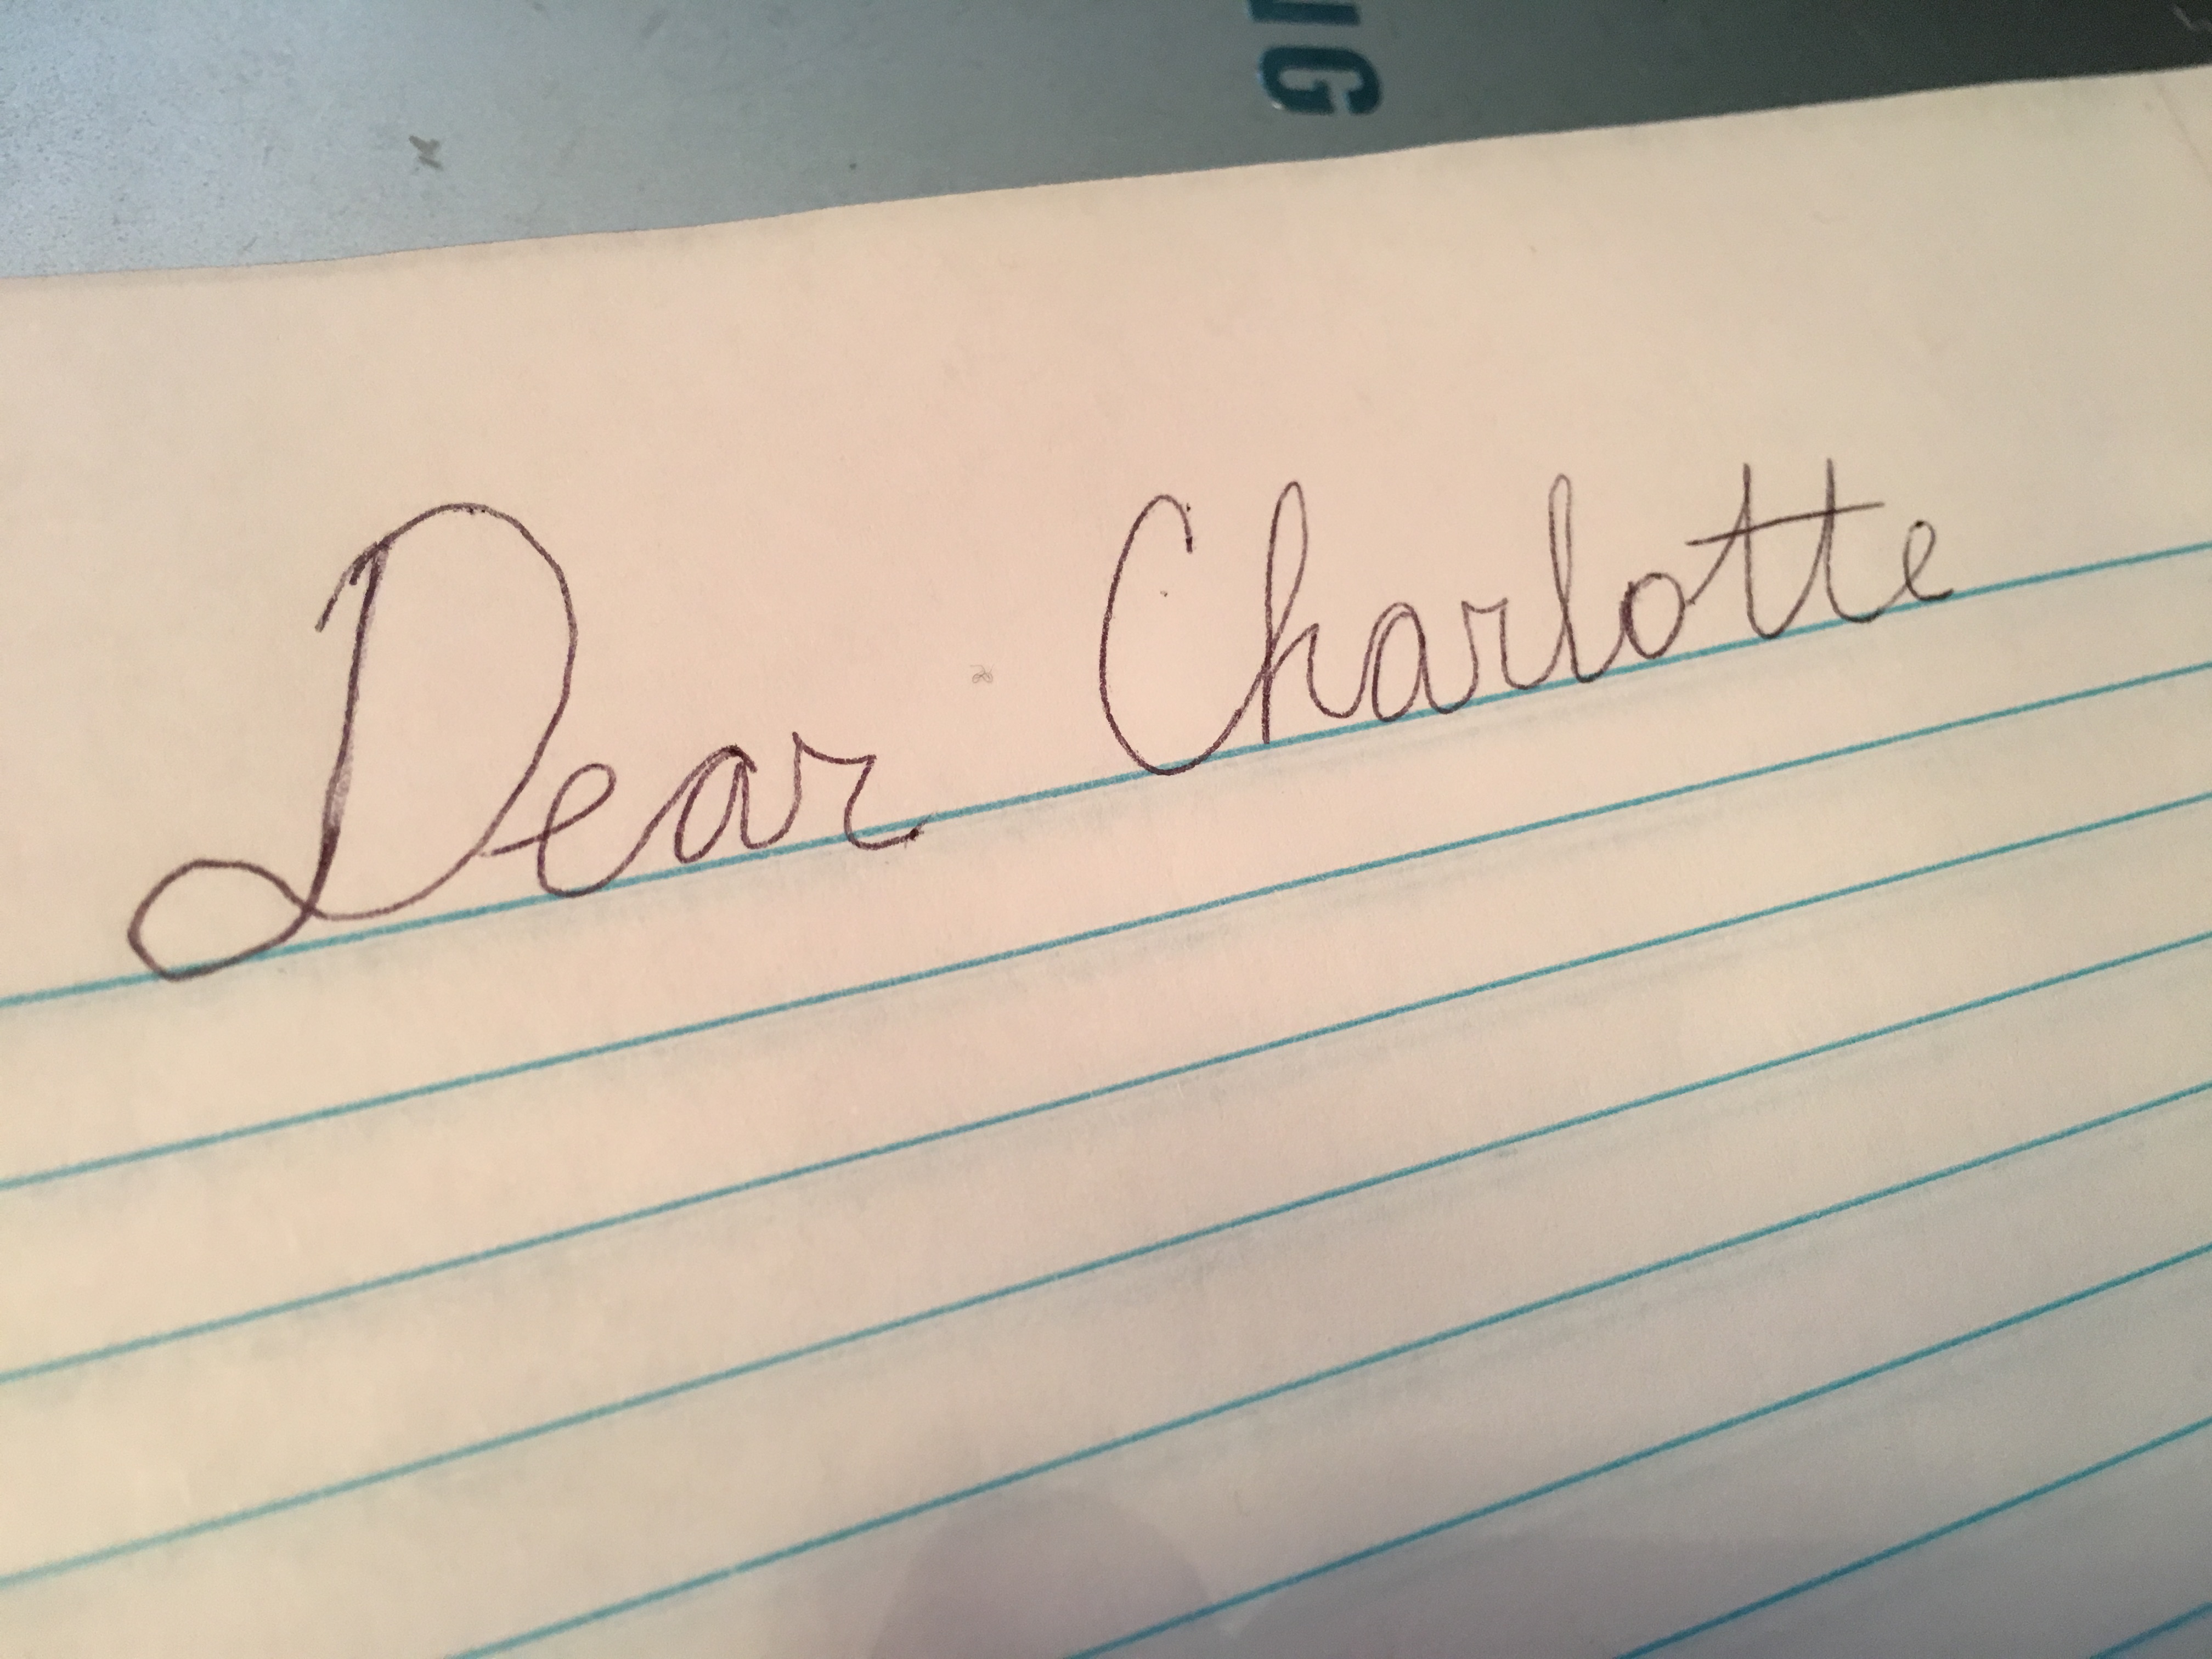 Dear Charlotte